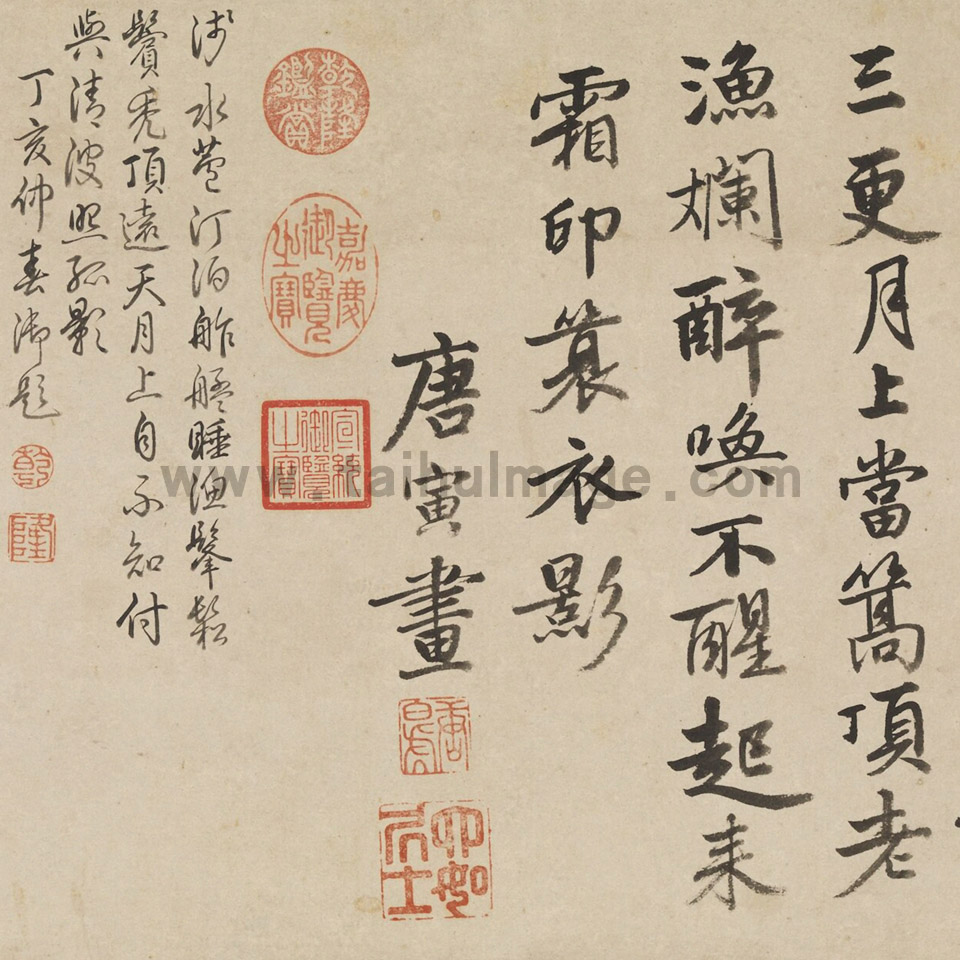 三更月上當篙頂老
漁爛醉喚不醒起来
霜印蓑衣影
唐寅畫
唐白虎
六如居士
乾隆鑑賞
嘉慶御覽之寶
宣統御覽之寶
淺水蘆汀泊舴艋睡漁髼鬆
鬢禿頂遠天月上自不知付
與清波照孤影
丁亥仲春御題
乾
隆